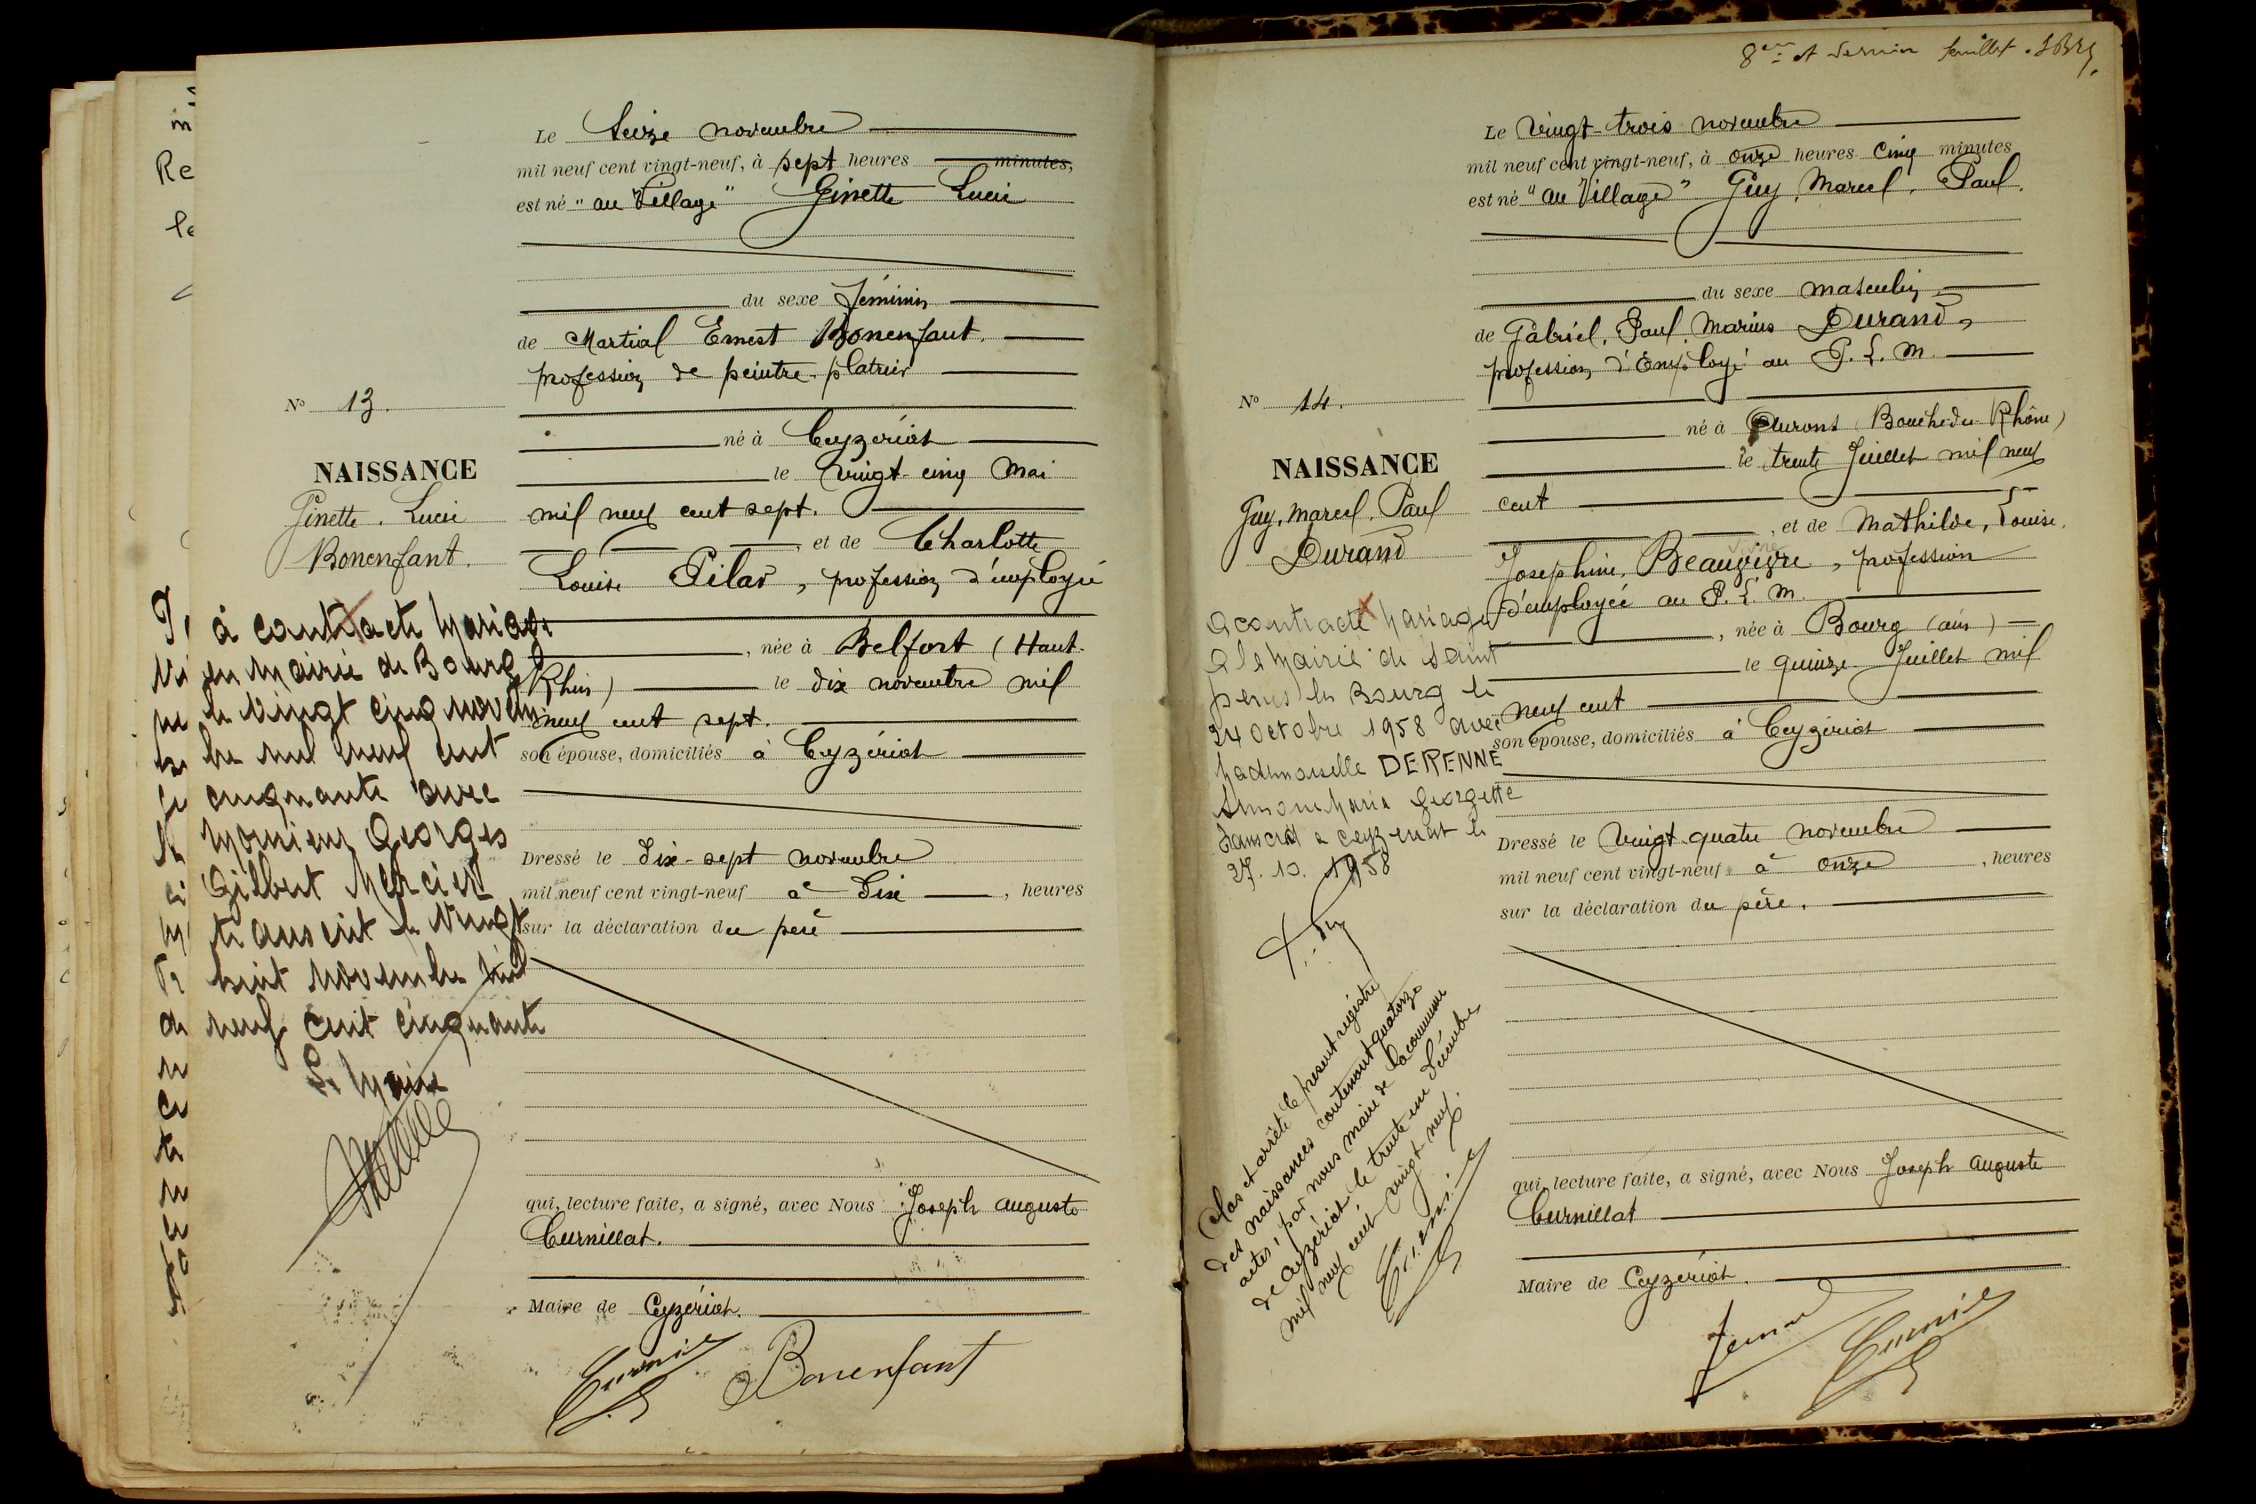 Le Seize novembre
mil neuf cent vingt-neuf, à sept heures minutes,
est né "au Village" Ginette Lucie
du sexe féminin
de Martial Ernest Bonenfant.
profession de peintre-platrier
Nº 13.
né à Ceyzériat
NAISSANCE
le vingt-cinq Mai
Ginette. Lucie
mil neuf cent sept.
Bonenfant.
, et de Charlotte
Louise Pilar, profession d'employée
, née à Belfort (Haut-
Rhin) le dix novembre mil
neuf cent sept.
son épouse, domiciliés à Ceyzériat
à contracté Mariage
en Mairie de Bourg
le vingt cinq novem
bre mil neuf cent
cinquante avec
Monsieur Georges
Gilbert Mercier
transcrit le vingt
huit novembre mil
neuf cent cinquante
Le Maire
Dressé le dix-sept novembre
mil neuf cent vingt-neuf à dix , heures
sur la déclaration du père
qui, lecture faite, a signé, avec Nous Joseph Auguste
Curnillat.
Maire de Ceyzériat.
Bonenfant
8eme et dernier feuillet.
Le vingt-trois novembre
mil neuf cent vingt-neuf, à onze heures cinq minutes
est né "au Village" Guy, Marcel, Paul.
du sexe masculin
de Gabriel, Paul, Marius Durand,
profession d'Employé au P. L. M.
Nº 14.
né à Aurons (Bouche-du-Rhône)
NAISSANCE
le trente Juillet mil neuf
Guy, Marcel, Paul
cent
Durand
, et de Mathilde, Louise,
Josephine, Beauvivre, profession
d'employée au P. L. M.
, née à Bourg (ain)
le quinze Juillet mil
neuf cent
son épouse, domiciliés à Ceyzériat
A contracté Mariage
a la Mairie de Saint
denis les Bourg le
24 Octobre 1958 avec
Mademoiselle DERENNE
Simone Maria Georgette
Transcrit a Ceyzeriat le
27. 10. 1958
Dressé le vingt-quatre novembre
mil neuf cent vingt-neuf à onze , heures
sur la déclaration du père.
Clos et arrêté le présent registre
des naissances contenant quatorze
actes, par nous maire de la commune
de Ceyzériat le trente un Décembre
mil neuf cent vingt neuf.
qui, lecture faite, a signé, avec Nous Joseph Auguste
Curnillat
Maire de Ceyzériat.